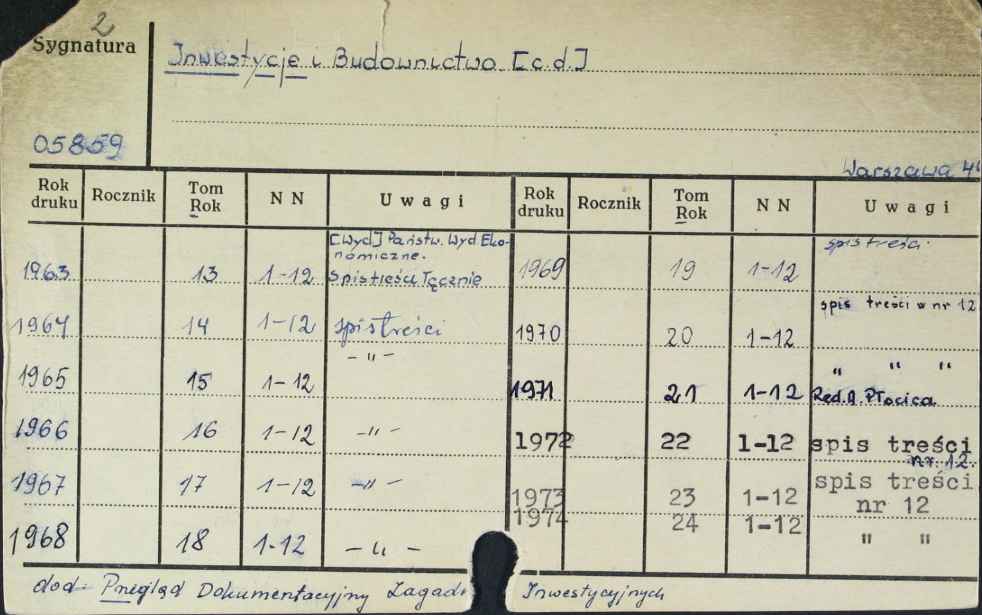 2
Sygnatura
Inwestycje i Budownictwo [c.d.]
05859
Warszawa 44
Rok druku Rocznik Tom Rok N N Uwagi Rok druku Rocznik Tom Rok N N Uwagi
[Wyd] Państw. Wyd. Eko-
nomiczne.
1963 13 1-12 Spis treści Łącznie
1964 14 1-12 spis treści
1965 15 1-12 - " -
1966 16 1-12 - " -
1967 17 1-12 - " -
1968 18 1-12 - " -
spis treści.
1969 19 1-12
spis treści w nr 12
1970 20 1-12
" " "
1971 21 1-12 Red. A. Płocica
1972 22 1-12 spis treści
nr. 12.
spis treści
1973 23 1-12 nr 12
1974 24 1-12 " "
dod. Przegląd Dokumentacyjny Zagad Inwestycyjnych